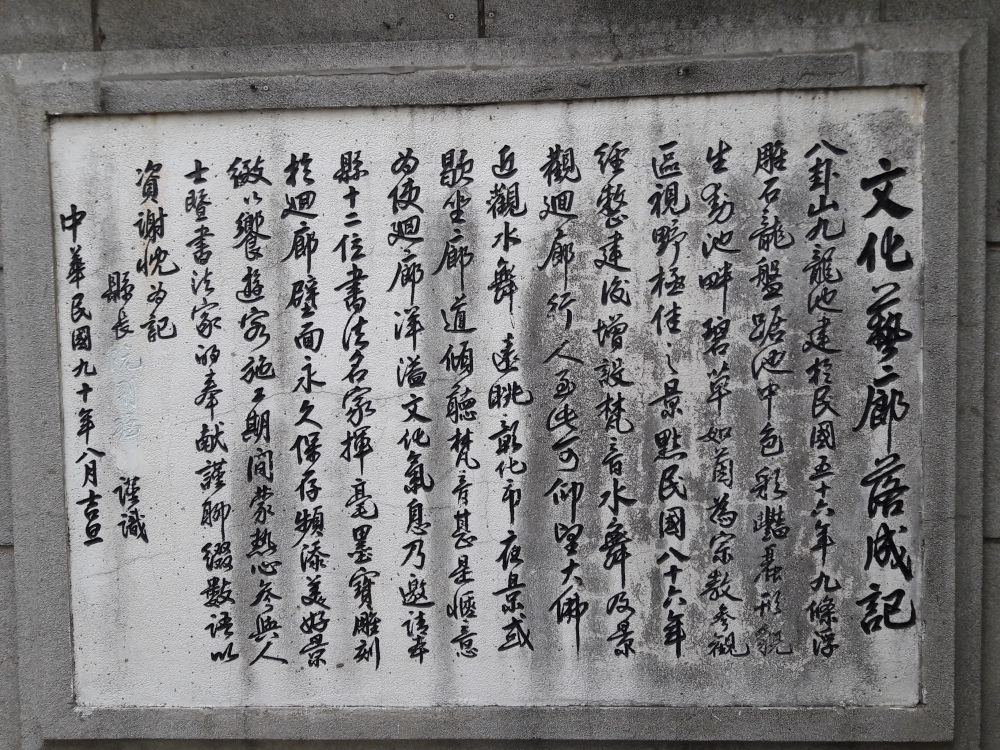 文化藝廊落成記
八卦山九龍池建於民國五十六年九條浮
雕石龍盤踞池中色彩豔麗形貌
生動池畔碧草如茵為宗教參觀
區視野極佳之景點民國八十六年
經整建後增設梵音水舞及景
觀迴廊行人至此可仰望大佛
近觀水舞遠眺彰化市夜景或
歇坐廊道傾聽梵音甚是愜意
為使迴廊洋溢文化氣息乃邀請本
縣十二位書法名家揮毫墨寶雕刻
於迴廊壁面永久保存頻添美好景
緻以饗遊客施工期間蒙熱心參與人
士暨書法家的奉献謹聊綴數語以
資謝忱為記
縣長 謹識
中華民國九十年八月吉旦